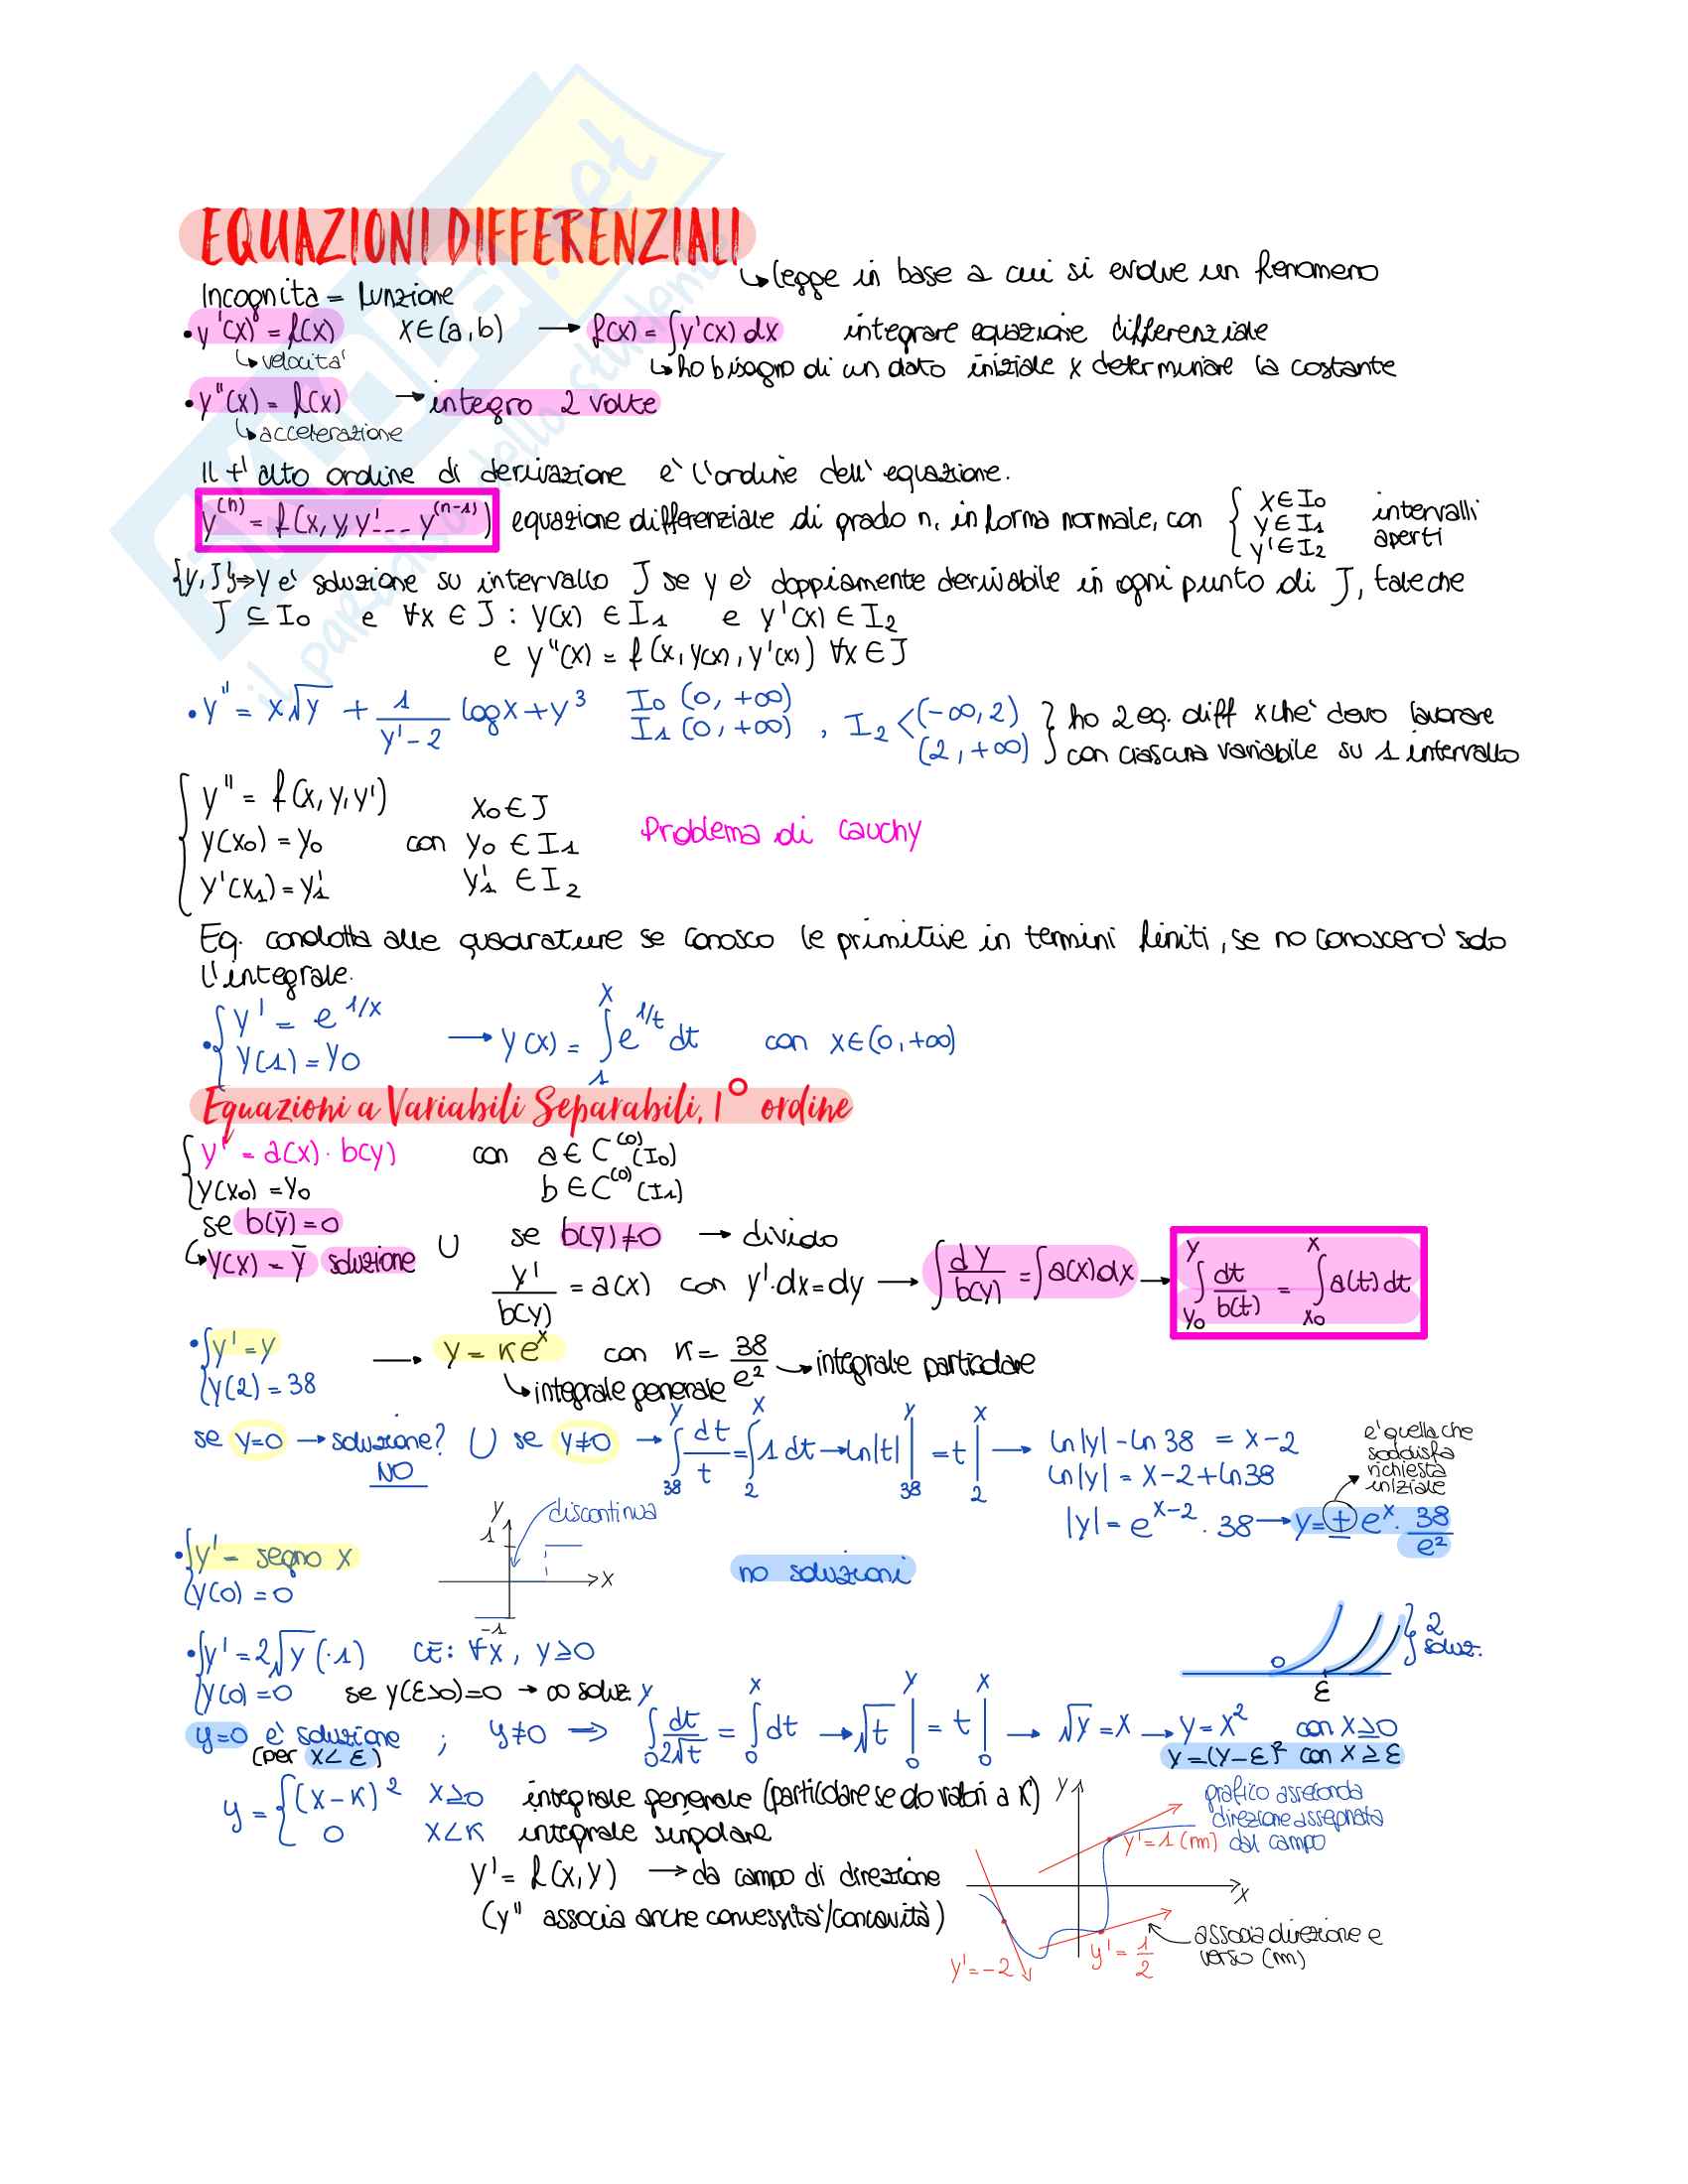 EQUAZIONI DIFFERENZIALI
↳ legge in base a cui si evolve un fenomeno
Incognita = funzione
• y'(x) = f(x) x∈(a,b) → f(x) = ∫y'(x) dx integrare equazione differenziale
↳ velocità ↳ ho bisogno di un dato iniziale x determinare la costante
• y''(x) = f(x) → integro 2 volte
↳ accelerazione
Il +' alto ordine di derivazione e' l'ordine dell' equazione.
y^(n) = f(x, y, y'... y^(n-1)) equazione differenziale di grado n, in forma normale, con { x∈I₀ y∈I₁ y'∈I₂ intervalli aperti
{y,J} ⇒ y e' soluzione su intervallo J se y e' doppiamente derivabile in ogni punto di J, tale che
J ⊆ I₀ e ∀x ∈ J : y(x) ∈ I₁ e y'(x) ∈ I₂
e y''(x) = f(x, y(x), y'(x)) ∀x∈J
• y'' = x√y + 1/(y'-2) log x + y³ I₀ (0, +∞) I₁ (0, +∞) , I₂ < (-∞,2) (2, +∞) } ho 2 eq. diff xche' devo lavorare con ciascuna variabile su 1 intervallo
{ y'' = f(x, y, y') x₀ ∈ J
y(x₀) = y₀ con y₀ ∈ I₁ Problema di Cauchy
y'(x₁) = y₁' y₁' ∈ I₂
Eq. condotta alle quadrature se conosco le primitive in termini finiti, se no conoscero' solo
l'integrale.
• { y' = e^(1/x) y(1) = y0 → y(x) = ∫₁ˣ e^(1/t) dt con x∈(0,+∞)
Equazioni a Variabili Separabili, 1° ordine
{ y' = a(x) · b(y) con a ∈ C^(0)(I₀)
y(x₀) = y₀ b ∈ C^(0)(I₁)
se b(ȳ) = 0 ∪ se b(ȳ) ≠ 0 → divido
↳ y(x) = ȳ soluzione
y'/b(y) = a(x) con y'·dx = dy → ∫dy/b(y) = ∫a(x)dx → ∫_{y₀}^{y} dt/b(t) = ∫_{x₀}^{x} a(t)dt
• { y' = y y(2) = 38 → y = k e^x con k = 38/e² → integrale particolare
↳ integrale generale
se y=0 → soluzione? NO ∪ se y≠0 → ∫₃₈^y dt/t = ∫₂^x 1 dt → ln|t| |₃₈^y = t |₂^x → ln|y| - ln 38 = x-2
ln|y| = x-2+ln38
|y| = e^(x-2) · 38 → y = ± e^x · 38/e²
e' quella che
soddisfa
richiesta
iniziale
• { y' = segno x y(0) = 0
y 1 discontinua x -1
no soluzioni
• { y' = 2√y (·1) CE: ∀x, y≥0
y(0) = 0 se y(ε>0)=0 → ∞ soluz.
0 ε } 2 soluz.
y=0 e' soluzione ; y≠0 ⇒ ∫₀^y dt/2√t = ∫₀^x dt → √t |₀^y = t |₀^x → √y = x → y = x² con x≥0
(per x<ε) y=(y-ε)² con x≥ε
y = { (x-k)² x≥0 integrale generale (particolare se do valori a k)
0 x<k integrale singolare
y' = f(x,y) → da campo di direzione
(y'' associa anche convessita'/concavità)
y x
grafico asseconda
direzione assegnata
dal campo
y'=1 (m)
y'=-2
y'=1/2
associa direzione e
verso (m)